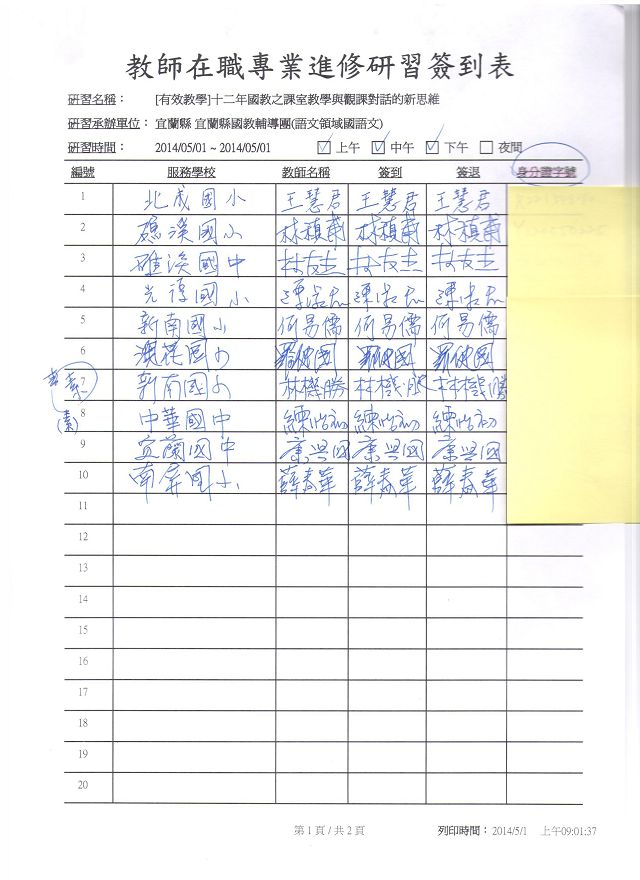 教師在職專業進修研習簽到表
研習名稱： [有效教學]十二年國教之課室教學與觀課對話的新思維
研習承辦單位： 宜蘭縣 宜蘭縣國教輔導團(語文領域國語文)
研習時間： 2014/05/01 ~ 2014/05/01 上午 中午 下午 夜間
編號 服務學校 教師名稱 簽到 簽退 身分證字號
1 北成國小 王慧君 王慧君 王慧君
2 礁溪國小
3 礁溪國中 林友志 林友志 林友志
4 國小
5 新南國小 何易儒 何易儒 何易儒
6 澳花國小
新南國小 林機勝 林機勝 林機勝
(素)
8 中華國中 練怡初 練怡初 練怡初
9 宜蘭國中 康興國 康興國 康興國
10 南屏國小 薛春華 薛春華 薛春華
11
12
13
14
15
16
17
18
19
20
第 1 頁 / 共 2 頁 列印時間： 2014/5/1 上午09:01:37